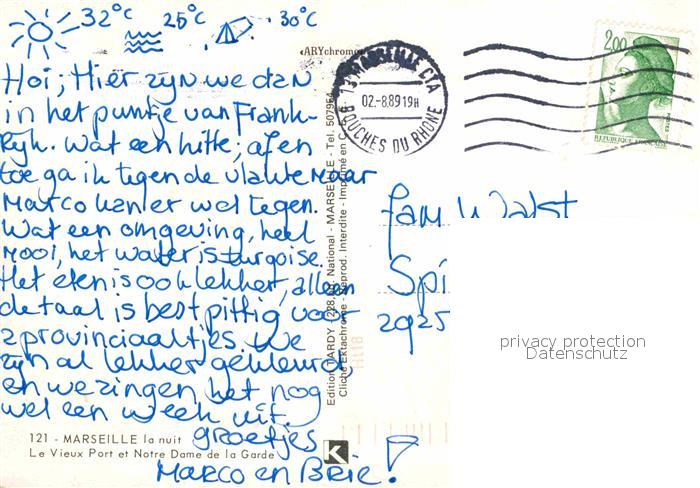 32°C 25°C 30°C
Hoi, Hier zijn we dan
in het puntje van Frank-
Rijk. Wat een hitte, af en
toe ga ik tegen de vlakte maar
Marco kan er wel tegen.
Wat een omgeving, heel
mooi, het water is turqoise.
Het eten is ook lekker, alleen
de taal is best pittig voor
2 provinciaaltjes. We
zijn al lekker gekleurd
en we zingen het nog
wel een week uit.
groetjes
Marco en Brie!
121 - MARSEILLE la nuit
Le Vieux Port et Notre Dame de la Garde
Edition TARDY National - MARSEILLE - Tel. 50795
Cliché Ektachrome - Reprod. Interdite - Imprimé en
«ARYchrome
13 MARSEILLE CTA
02.-8.89 19H
BOUCHES DU RHONE
2,00
POSTES
REPUBLIQUE FRANÇAISE
fam Walst
Spi
2925
K
privacy protection
Datenschutz